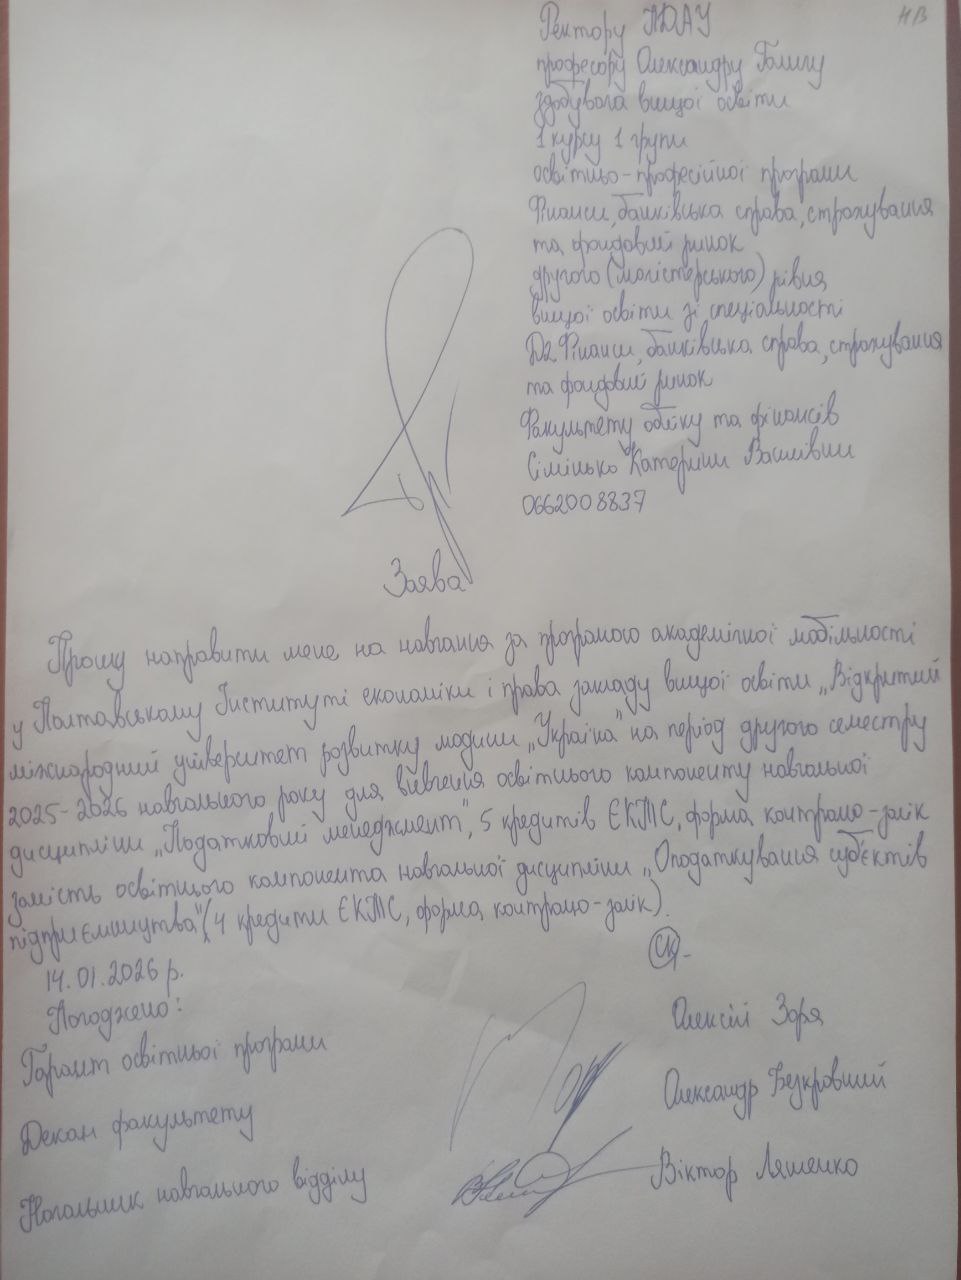 НВ
Ректору ПДАУ
професору Олександру Галичу
здобувача вищої освіти
1 курсу 1 групи
освітньо-професійної програми
Фінанси, банківська справа, страхування
та фондовий ринок
другого (магістерського) рівня
вищої освіти зі спеціальності
D2 Фінанси, банківська справа, страхування
та фондовий ринок
Факультету обліку та фінансів
Катерини Василівни
0662008837
Заява
Прошу направити мене на навчання за програмою академічної мобільності
у Полтавському Інституті економіки і права закладу вищої освіти „Відкритий
міжнародний університет розвитку людини „Україна" на період другого семестру
2025-2026 навчального року для вивчення освітнього компоненту навчальної
дисципліни „Податковий менеджмент", 5 кредитів ЄКТС, форма контролю-залік
замість освітнього компонента навчальної дисципліни „Оподаткування суб'єктів
підприємництва" (4 кредити ЄКТС, форма контролю-залік).
14.01.2026 р.
Погоджено:
Гарант освітньої програми Олексій Зоря
Декан факультету Олександр Безкровний
Начальник навчального відділу Віктор Ляшенко